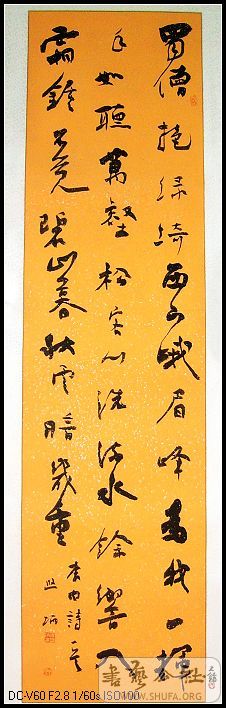 蜀僧抱綠綺西下峨眉峰為我一揮
手如聽萬壑松客心洗流水餘響入
霜鐘不覺碧山暮秋雲暗幾重
李白詩一首
書藝公社
WWW.SHUFA.ORG
DC-V60 F2.8 1/60s ISO100